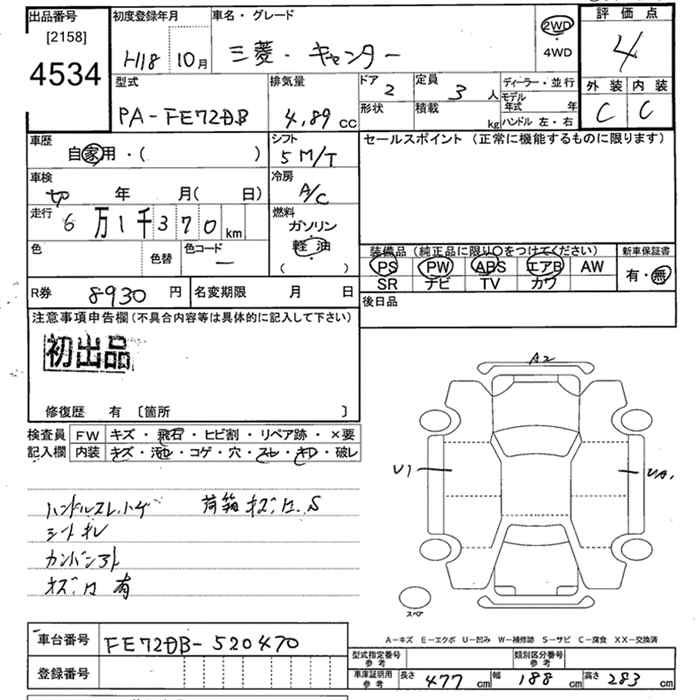 出品番号
[2158]
4534
初度登録年月
H18 10月
車名・グレード
三菱・キャンター
2WD
4WD
評価点
4
外装 内装
C C
型式
PA-FE72DB
排気量
4,89 cc
ドア 2
形状
定員 3 人
積載 kg
ディーラー・並行
モデル年式 年
ハンドル 左・右
車歴
自家用・( )
シフト
5 M/T
セールスポイント (正常に機能するものに限ります)
車検
切 年 月( 日)
冷房
A/C
走行
6万1千370km
燃料
ガソリン
軽油
( )
色
色替
色コード
ー
装備品(純正品に限り○をつけてください)
新車保証書
PS PW ABS エアB AW
SR ナビ TV カワ
有・無
R券 8930円
名変期限 月 日
後日品
注意事項申告欄(不具合内容等は具体的に記入して下さい)
初出品
修復歴 有 〔箇所 〕
検査員
記入欄
FW キズ・飛石・ヒビ割・リペア跡・×要
内装 キズ・汚れ・コゲ・穴・スレ・キレ・破レ
ハンドルスレ、ハゲ 荷箱キズ、凹、S
シートキレ
カンバン跡
キズ、凹有
A2
U1
スペア
A-キズ E-エクボ U-凹み W-補修跡 S-サビ C-腐食 XX-交換済
車台番号
FE72DB-520470
登録番号
型式指定番号
参考
類別区分番号
参考
車庫証明用
参考
長さ 477 cm 幅 188 cm 高さ 283 cm